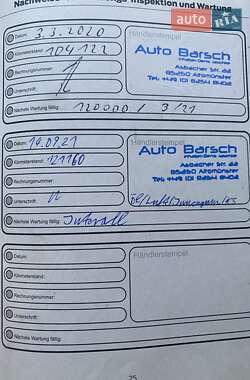 Nachweise Inspektion und Wartung
AUTO RIA
Datum: 3.3.2020
Kilometerstand: 104122
Rechnungsnummer:
Unterschrift:
Nächste Wartung fällig: 120000 / 3/21
Händlerstempel
Auto Barsch
Asbacher Str. 22
85250 Altomünster
Tel: +49 101 8254
Datum: 19.08.21
Kilometerstand: 121160
Rechnungsnummer:
Unterschrift:
Nächste Wartung fällig: Intervall
Händlerstempel
Auto Barsch
Asbacher Str. 22
85250 Altomünster
Tel: +49 101 8254
Datum:
Kilometerstand:
Rechnungsnummer:
Unterschrift:
Nächste Wartung fällig:
Händlerstempel
25